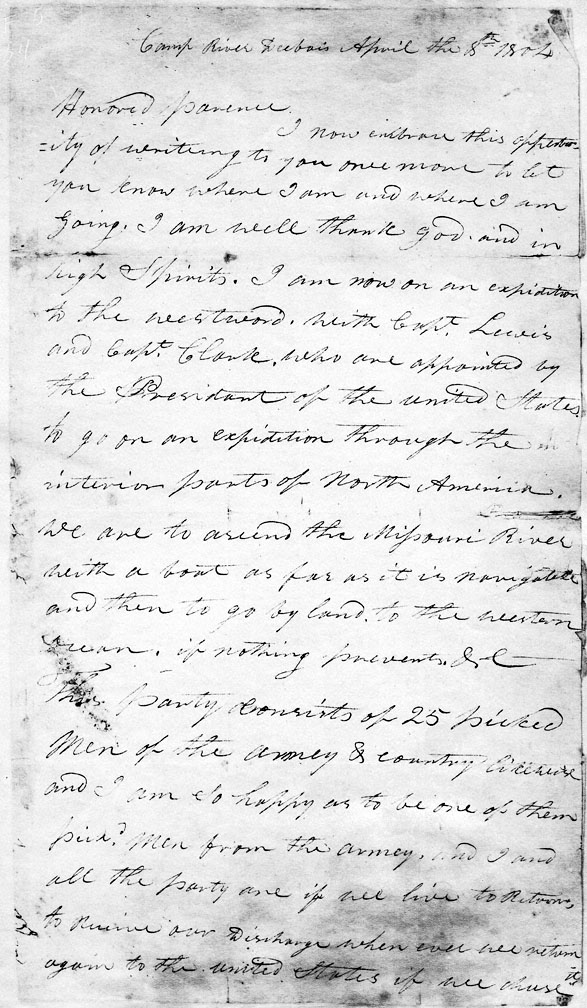 Camp River Deebois April the 8th 1804
Honored Parence.
I now embrace this oppertun=
=ity of writeing to you once more to let
you know where I am and where I am
going. I am well thank god. and in
high Spirits. I am now on an expidition
to the westward. with Capt. Lewis
and Capt. Clark. who are appointed by
the President of the united States
to go on an expidition through the
interior parts of North America.
We are to ascend the Missouri River
with a boat as far as it is navigable
and then to go by land. to the western
ocean. if nothing prevents. &C
This party consists of 25 picked
Men of the armey & country likewise
and I am So happy as to be one of them
pick.d Men from the armey. and I and
all the party are if we live to Return,
to Receive our Discharge when ever we return
again to the united States if we chuse it